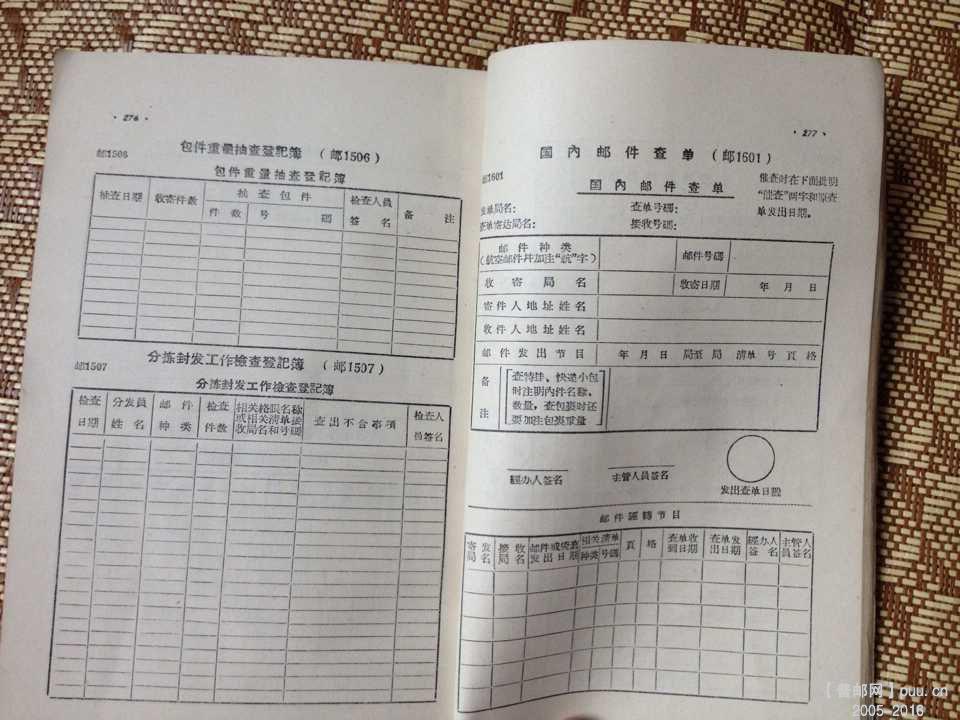 · 276 ·
包件重量抽查登記簿 （邮1506）
邮1506
包件重量抽查登記簿
抽查日期 收寄件数 抽查包件 检查人员签名 备注
件数 号碼
分拣封发工作檢查登記簿 （邮1507）
邮1507
分拣封发工作檢查登記簿
检查日期 分发员姓名 邮件种类 检查件数 相关格眼名称或相关清单接收局名和号碼 查出不合事項 检查人员签名
· 277 ·
国內邮件查单（邮1601）
邮1601
国內邮件查单
催查时在下面註明
“催查”两字和原查
单发出日期。
发单局名： 查单号碼：
查单寄达局名： 接收号碼：
邮件种类
（航空邮件并加注“航”字） 邮件号碼
收寄局名 收寄日期 年月日
寄件人地址姓名
收件人地址姓名
邮件发出节目 年月日 局至局 清单号頁格
备注
查特挂、快递小包
时注明內件名称、
数量，查包裹时还
要加注包裹重量
經办人签名 主管人员签名 发出查单日戳
邮件經轉节目
寄发局名 接收局名 发出日期 相关清单 頁 格 查单收到日期 查单发出日期 經办人签名 主管人员签名
种类 号碼
【善邮网】puu.cn
2005-2016